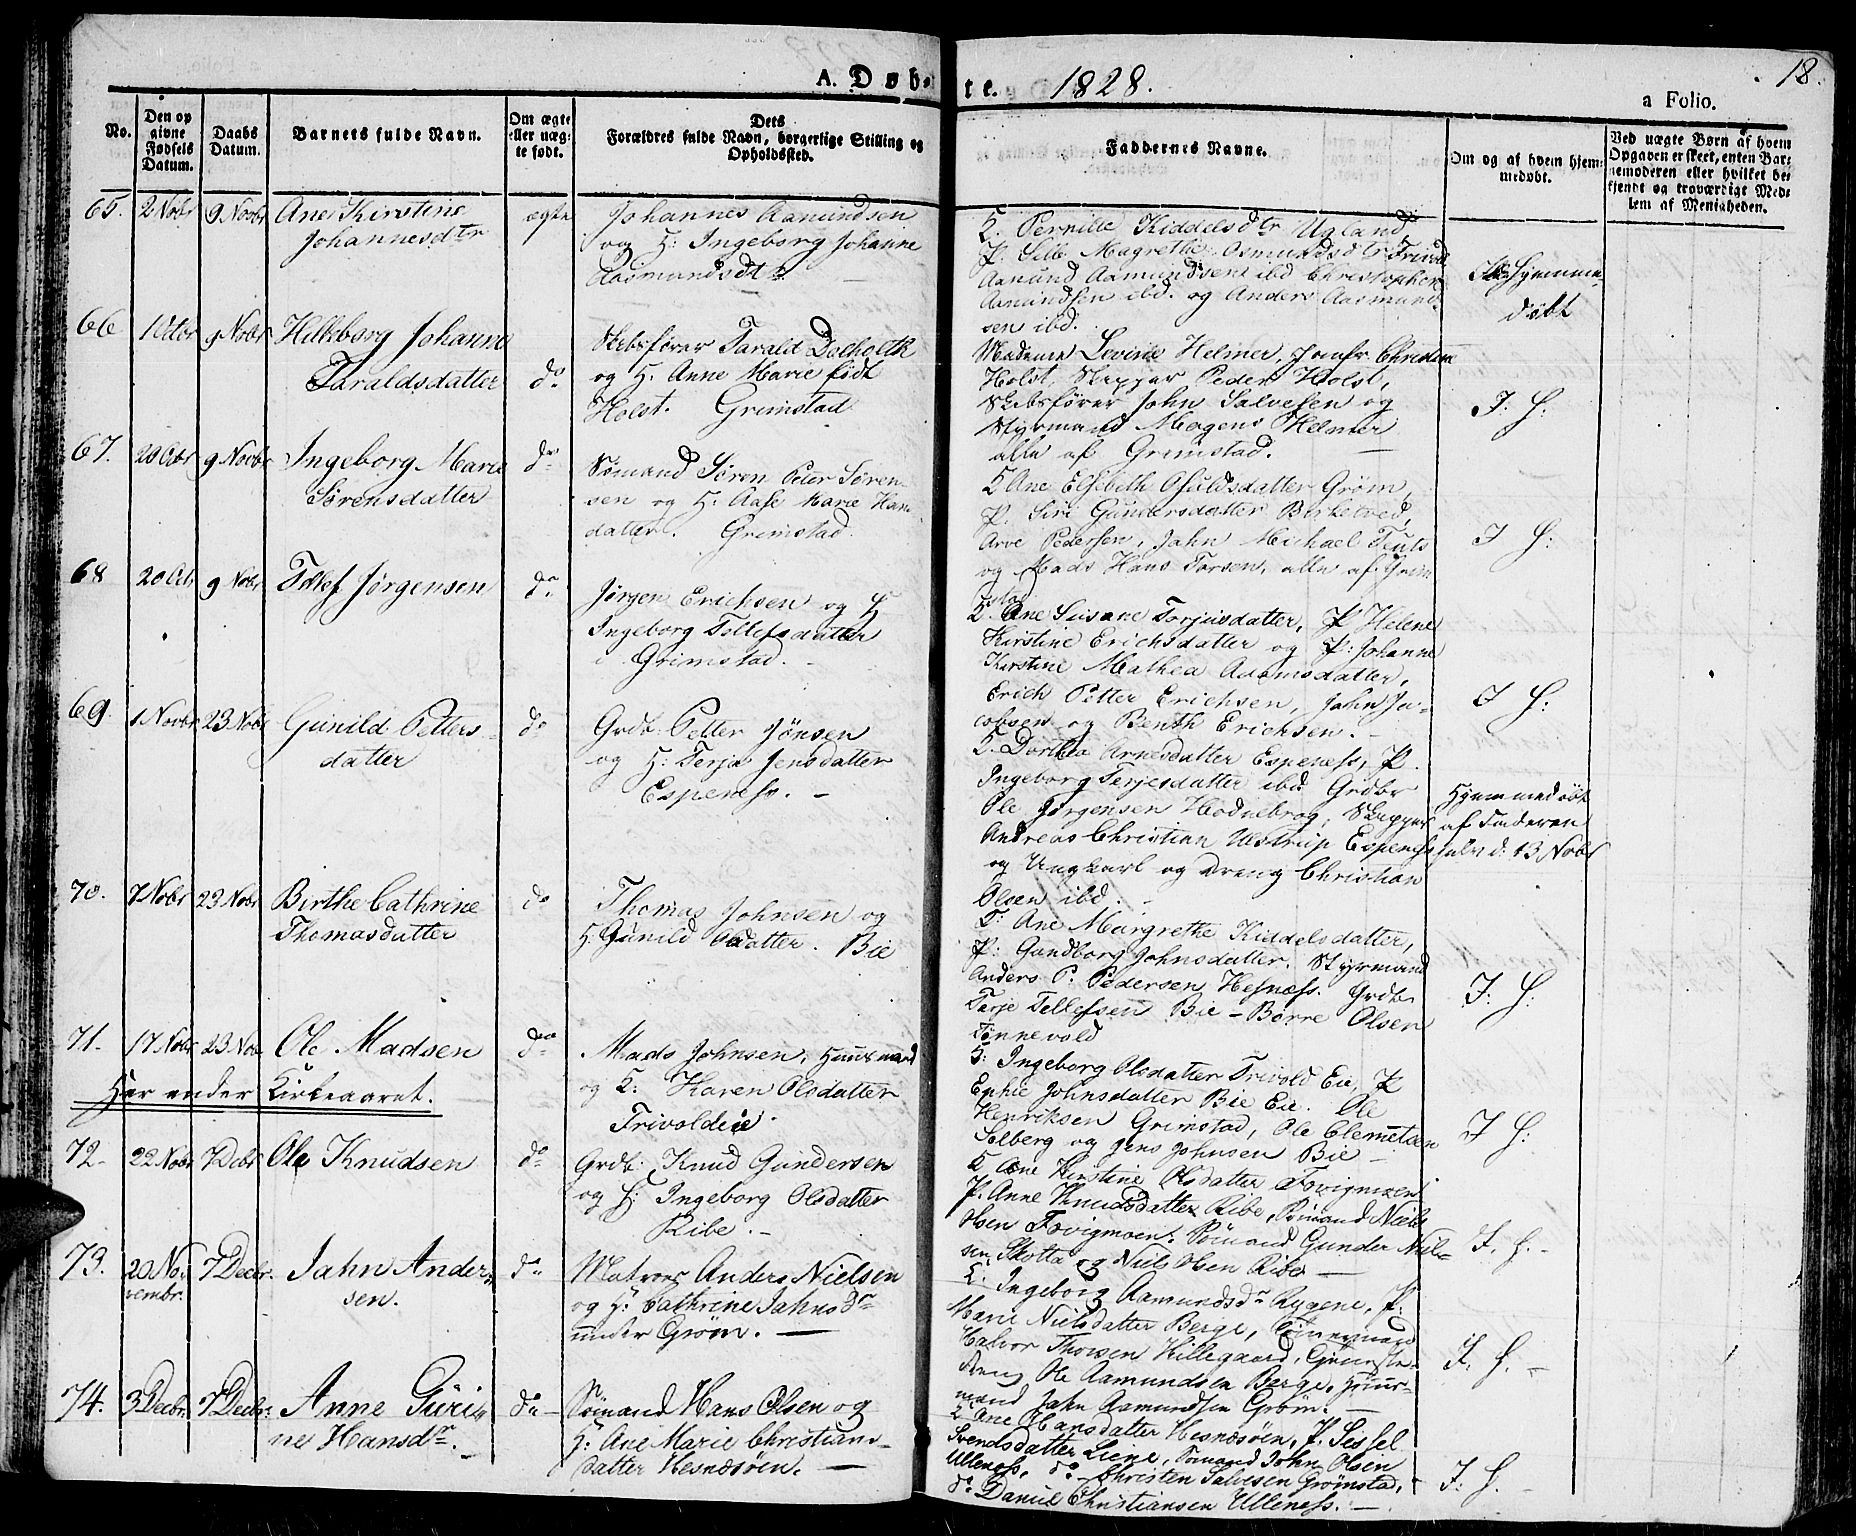 A. Døbte. 1828.
18.
a Folio.
No.
Den op
givne
Fødsels
Datum.
Daabs
Datum.
Barnets fulde Navn.
Om ægte
eller uæg-
te født.
Dets
Forældres fulde Navn, borgerlige Stilling og
Opholdssted.
Faddernes Navne.
Om og af hvem hjem-
medøbt.
Ved uægte Børn af hvem
Opgaven er skeet, enten Bar-
nemoderen eller hvilket be-
kjendt og troværdigt Med-
lem af Menigheden.
65. 2 Nobr 9 Novbr Ane Kirstine
Johannesdtr
ægte
Johannes Aamundsen
og H: Ingeborg Johanne
Aasmundsdtr
K. Pernille Kiddelsdtr Ugland
P: Sille Magrethe Osmundsdtr Trivold
Aanund Aamundsen ibd Christopher
Aamundsen ibd. og Anders Aasmund-
sen ibd.
Ik Hjemme-
døbt
66 1 Octor 9 Nobr Helleborg Johanne
Taraldsdatter
do
Skibsfører Tarald Dolholtk
og H. Anne Marie født
Holst. Grimstad
Madame Lovine Helmer, Jomfr. Christine
Holst, Skipper Peder Holst,
Skibsfører John Salvesen og
Styrmand Mogens Helmer
alle af Grimstad.
I: H:
67. 20 Octbr 9 Novbr Ingeborg Marie
Sørensdatter
do
Sømand Søren Peter Søren-
sen og H. Aase Marie Hans
datter. Grimstad.
K Ane Elsebeth Osuldsdatter Grøm,
P. Siri Gundersdatter Birketved,
Arve Pedersen, Jahn Michael Teuts
og Mads Hans Tarsen, alle af Grim
stad
I H:
68 20 Octbr 9 Nobr Tellef Jørgensen
do
Jørgen Erichsen og H
Ingeborg Tellefsdatter
i Grimstad.
K. Ane Susane Torjusdatter, P Helene
Kirstine Erichsdatter og P: Johanne
Kirstine Mathea Adamsdatter,
Erich Petter Erichsen, Jahn Ja-
cobsen og Benth Erichsen.
I H:
69. 1 Novbr 23 Nobr Gunild Petters
datter
do
Grdb: Petter Jönsen
og H: Terja Jensdatter
Espenes.
K. Dorthea Arnesdatter Espenæss, P.
Ingeborg Terjesdatter ibd Grdbr
Ole Jørgensen Hodnebrog, Skipper
Andreas Christian Ulstrup Espenæss
og Ungkarl og Dreng Christian
Olsen ibd.
Hjemmedøbt
af Faderen
selv d: 13 Nobr
70. 7 Nobr 23 Nobr Birthe Cathrine
Thomasdatter
do
Thomas Johnsen og
H: Gunild Oldatter. Bie
K: Ane Margrethe Kiddelsdatter,
P: Gundborg Johnsdatter, Styrmand
Anders P. Pedersen Hesnæss. Grdb
Terje Tellefsen Bie - Börre Olsen
Tönnevold
I: H:
71. 17 Nobr 23 Nob Ole Madsen
do
Mads Johnsen, Huusmand
og K: Karen Olsdatter
Trivoldeie
K: Ingeborg Olsdatter Trivold Eie, P
Ephie Johnsdatter Bie Eie. Ole
Henriksen Grimstad, Ole Clemetsen
Solberg og Jens Johnsen Bie
I H:
Her ender Kirkeaaret.
72. 22 Nobr 7 Debr Ole Knudsen
do
Grdb: Knud Gundersen
og H: Ingeborg Olsdatter
Ribe.
K. Ane Kirstine Olsdatter Fovigmoen
P. Anne Knudsdatter Ribe, Sömand Niels
Olsen Fovigmoen. Sömand Gunder Niel-
sen Skotta og Niels Olsen Ribe
I. H.
73. 20 No-
vembr.
7 Decbr. Jahn Ander-
sen.
do
Matros Anders Nielsen
og H: Cathrine Jahnsdr
under Grøm.
K: Ingeborg Aamundsdr Rygene, P:
Marie Nielsdatter Berge, Tømermand
Halvor Thorsen Killegaard, Tjeneste-
dreng Ole Aamundsen Berge, Huus-
mand Jahn Aamundsen Grøm.
I. H.
74. 3 Decbr. 7 Decbr. Anne Guri-
ne Hansdr.
do
Sömand Hans Olsen og
H: Ane Marie Christians-
datter Hesnesöen.
K Ane Hansdatter Hesnesöen, P. Sissel
Svendsdatter Liene, Sömand John Olsen
Ullenæss, do Christen Salvesen Grømstad,
do Daniel Christiansen Ullenæss.
I: H.